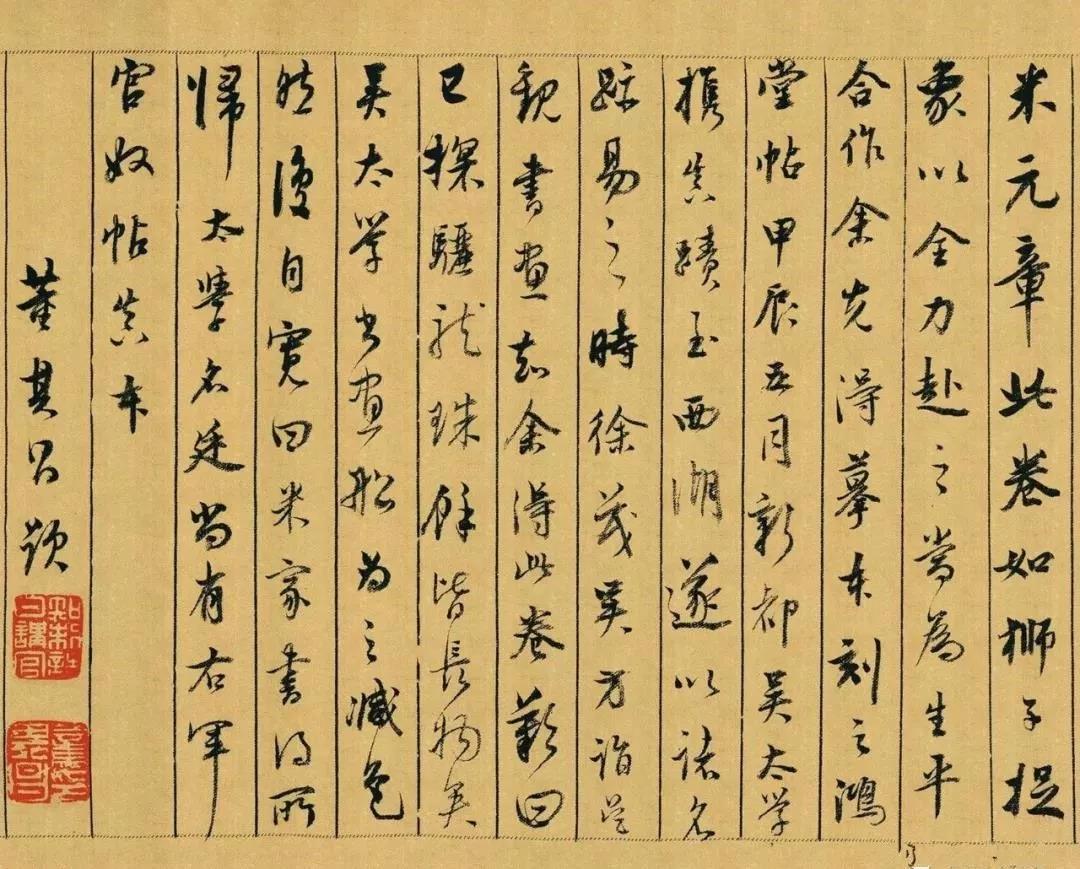 米元章此卷如獅子捉
象以全力赴之當為生平
合作余先得摹本刻之鴻
堂帖甲辰五月新都吳太學
攜真蹟至西湖遂以諸名
跡易之時徐茂吳方詣吳
觀書畫知余得此卷歎曰
已探驪龍珠餘皆長物矣
吳太學書畫船為之減色
然後自寬曰米家書得所
歸太學名廷尚有右軍
官奴帖真本
董其昌題
知制誥日講官
董其昌